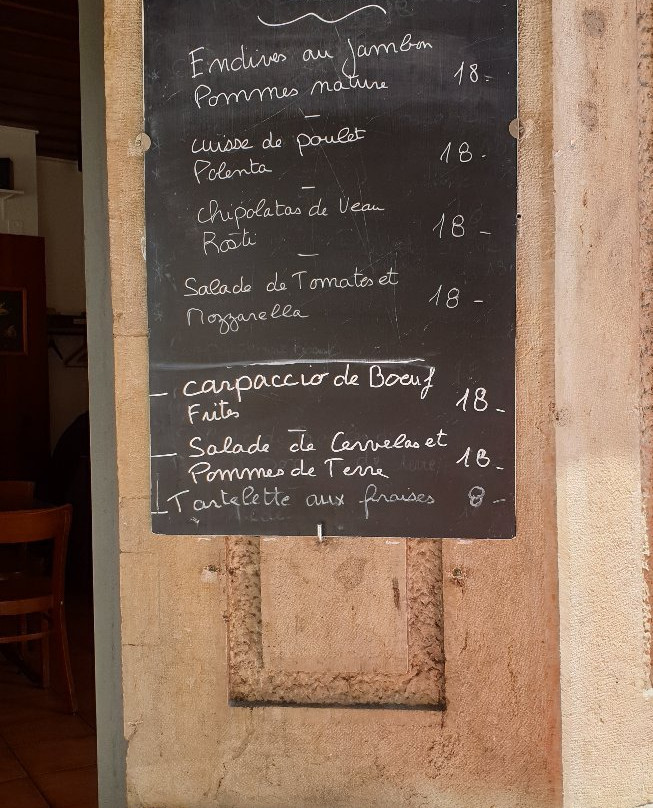 Endives au jambon
Pommes nature 18-
cuisse de poulet
Polenta 18-
chipolatas de Veau
Rösti 18-
Salade de Tomates et
Mozzarella 18-
carpaccio de Boeuf
Frites 18-
Salade de Cervelas et
Pommes de Terre 18-
Tartelette aux fraises 8-